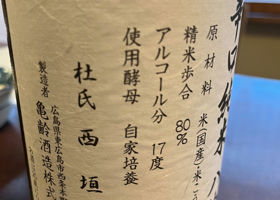 辛口純米八
原材料 米(国産)・米こう
精米歩合 80%
アルコール分 17度
使用酵母 自家培養
杜氏 西垣
広島県東広島市西条本町
製造者 亀齢酒造株式